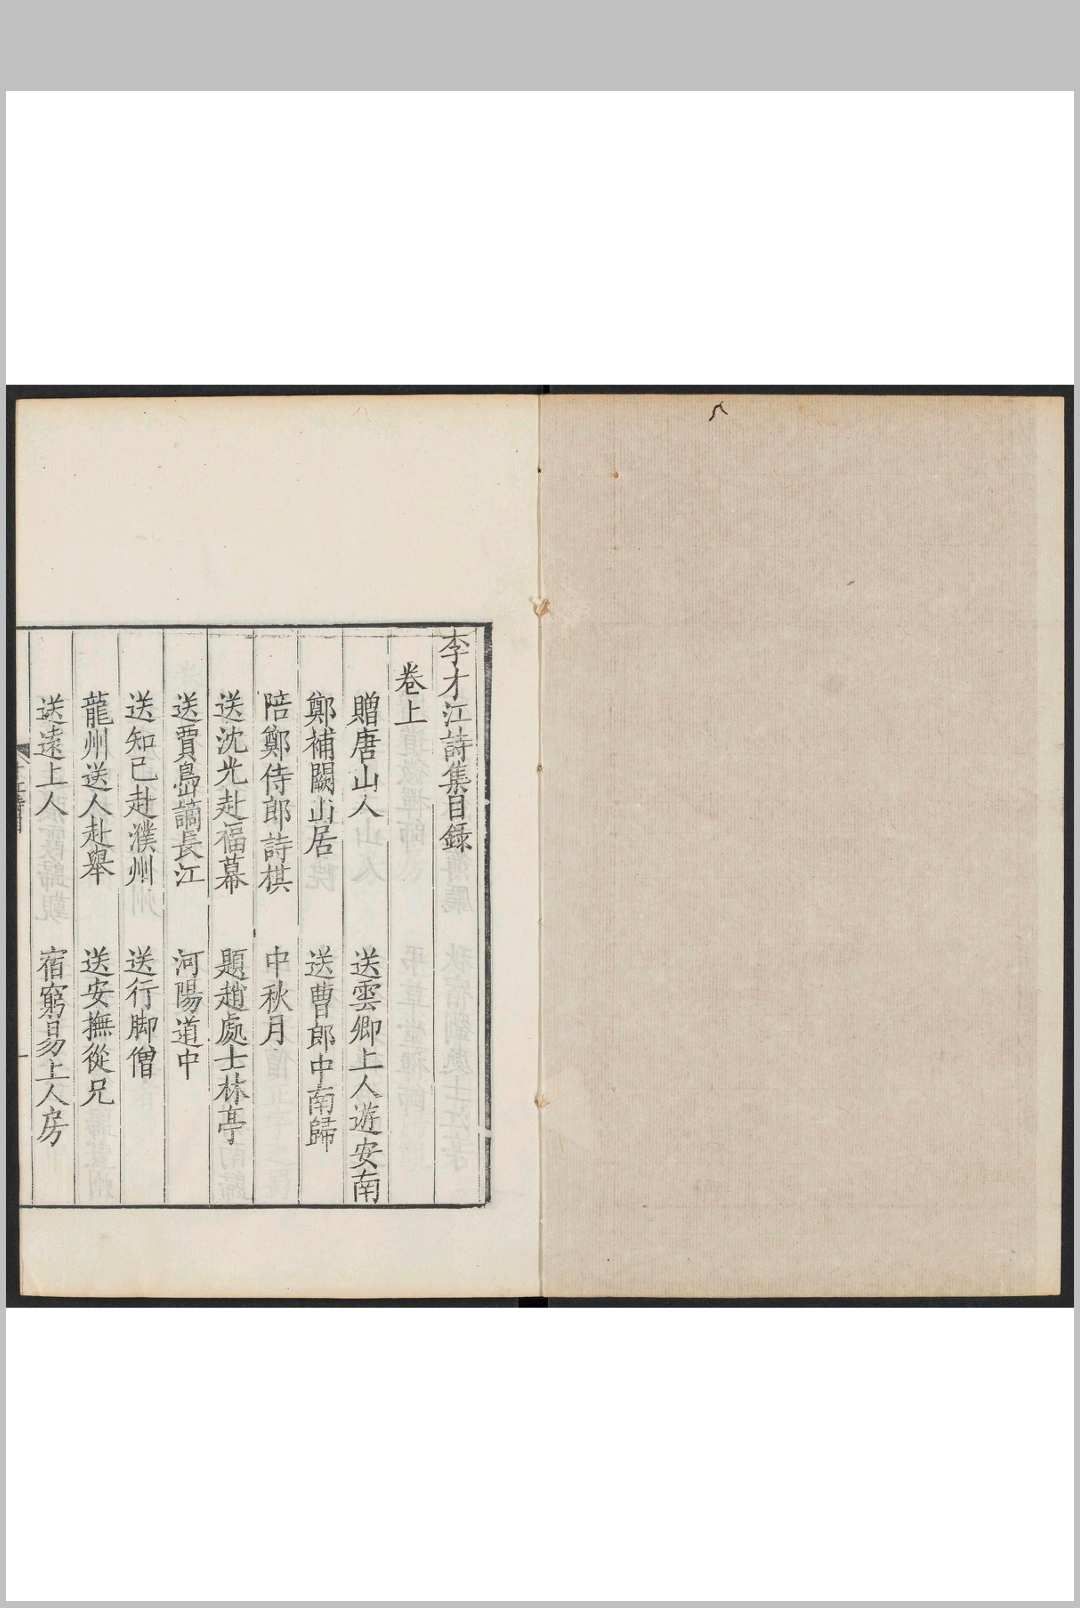 李才江詩集目録
卷上
贈唐山人 送雲卿上人遊安南
鄭補闕山居 送曹郎中南歸
陪鄭侍郎詩棋 中秋月
送沈光赴福幕 題趙處士林亭
送賈島謫長江 河陽道中
送知己赴濮州 送行脚僧
龍州送人赴舉 送安撫從兄
送遠上人 宿窮易上人房